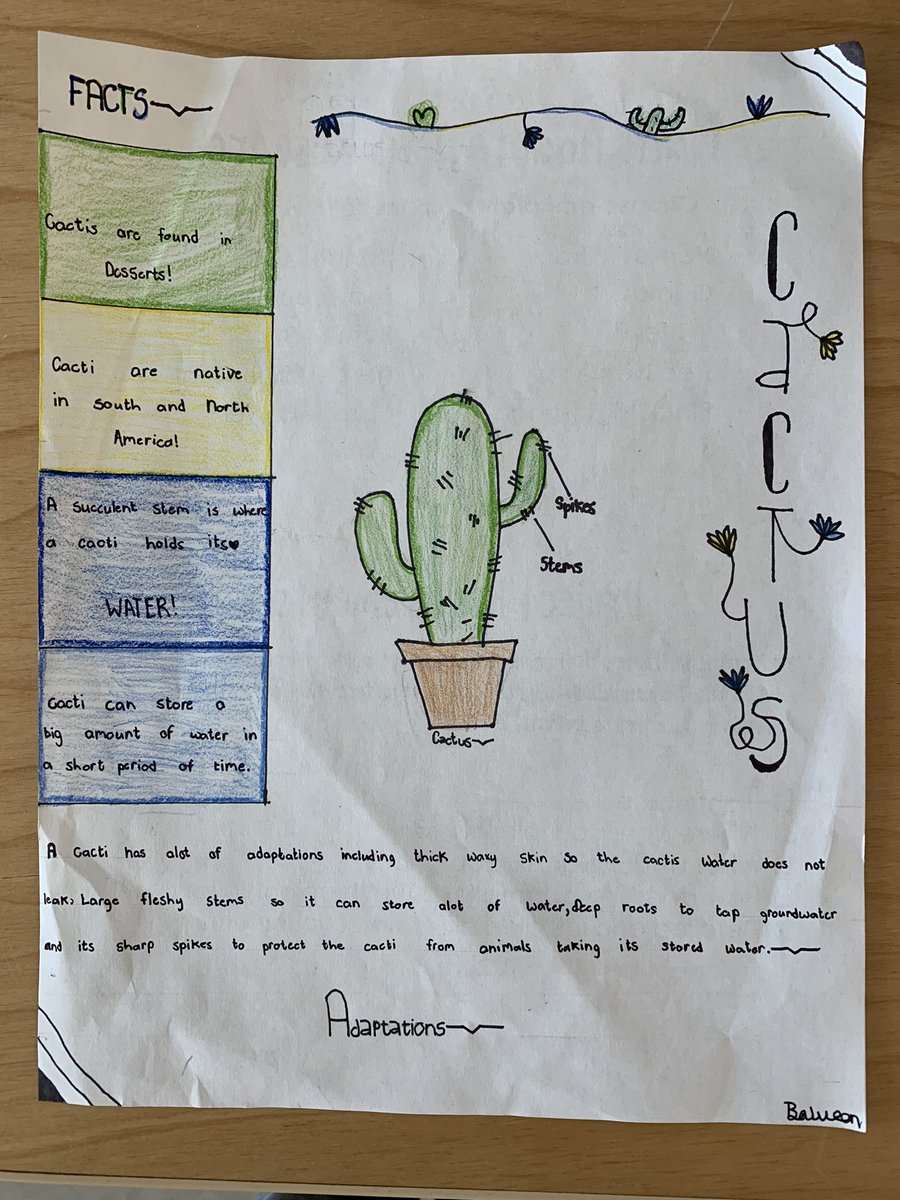 FACTS
Cactis are found in
Desserts!
Cacti are native
in South and North
America!
A Succulent stem is where
a cacti holds its
WATER!
Cacti can store a
big amount of water in
a short period of time.
Spikes
Stems
Cactus
CACTUS
A Cacti has alot of adaptations including thick waxy skin so the cactis water does not
leak, Large fleshy stems so it can store alot of water, deep roots to tap groundwater
and its sharp spikes to protect the cacti from animals taking its stored water.
Adaptations